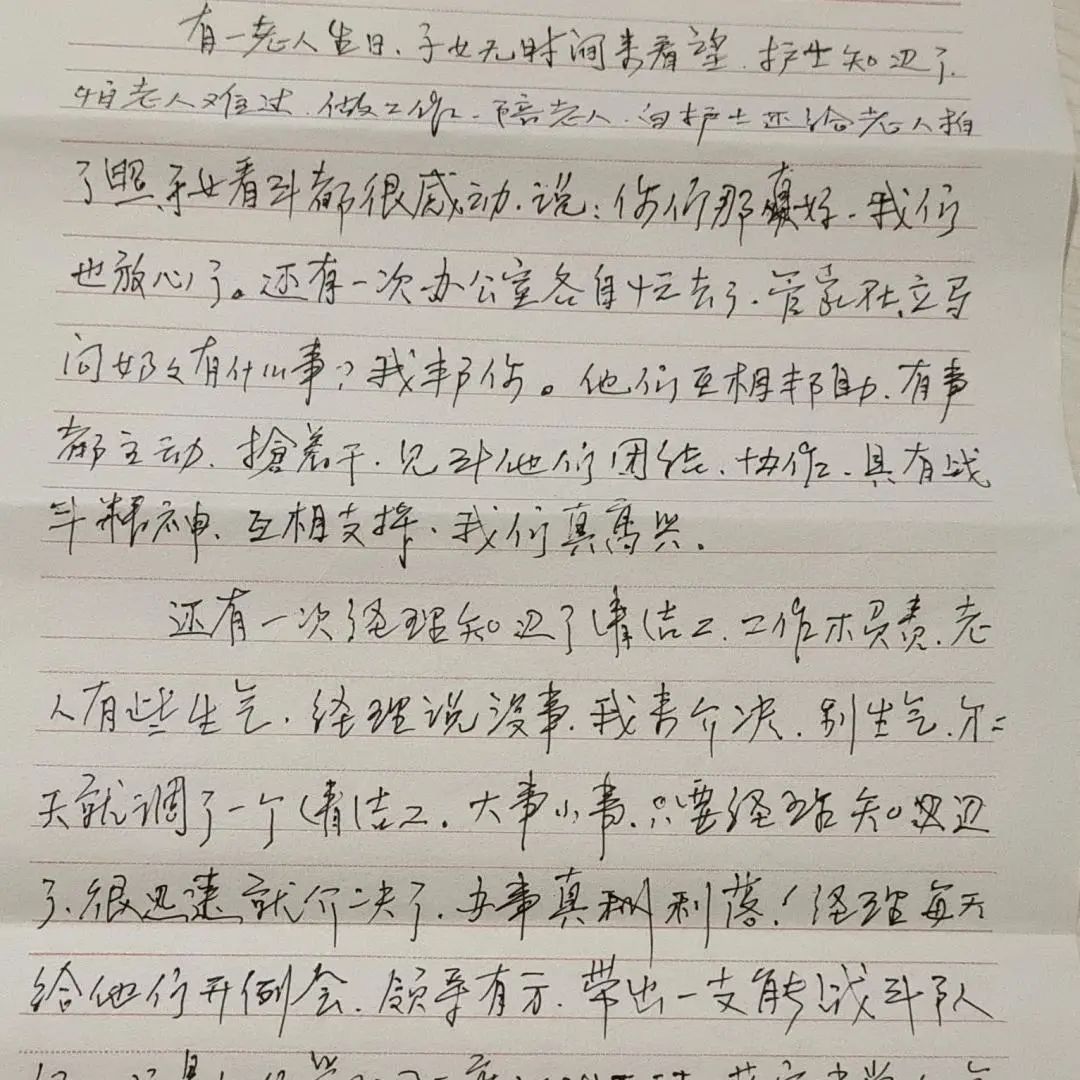 有一老人生日、子女无时间来看望、护士知边了、
怕老人难过、做工作、陪老人、白护士还给老人拍
了照、子女看斗都很感动、说：你们那真好、我们
也放心了。还有一次办公室各自忙去了、管家私立马
问奶々有什么事？我邦你。他们互相邦助、有事
都主动、抢着干、见斗他们团结、协作、具有战
斗精神、互相支持、我们真高兴。
还有一次经理知边了清洁工、工作不负责、老
人有些生气、经理说没事、我来介决、别生气、尔二
天就调了一个清洁工。大事小事、只要经理知边
了、很迅速就介决了、办事真利落！经理每天
给他们开例会、领导有方、带出一支能战斗队